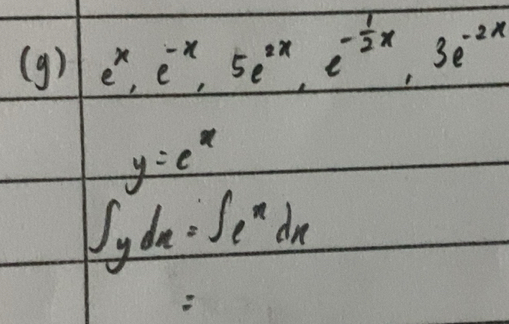 (g) eˣ, e⁻ˣ, 5e²ˣ, e^(-½x), 3e⁻²ˣ
y = eˣ
∫y dx = ∫eˣ dx
=